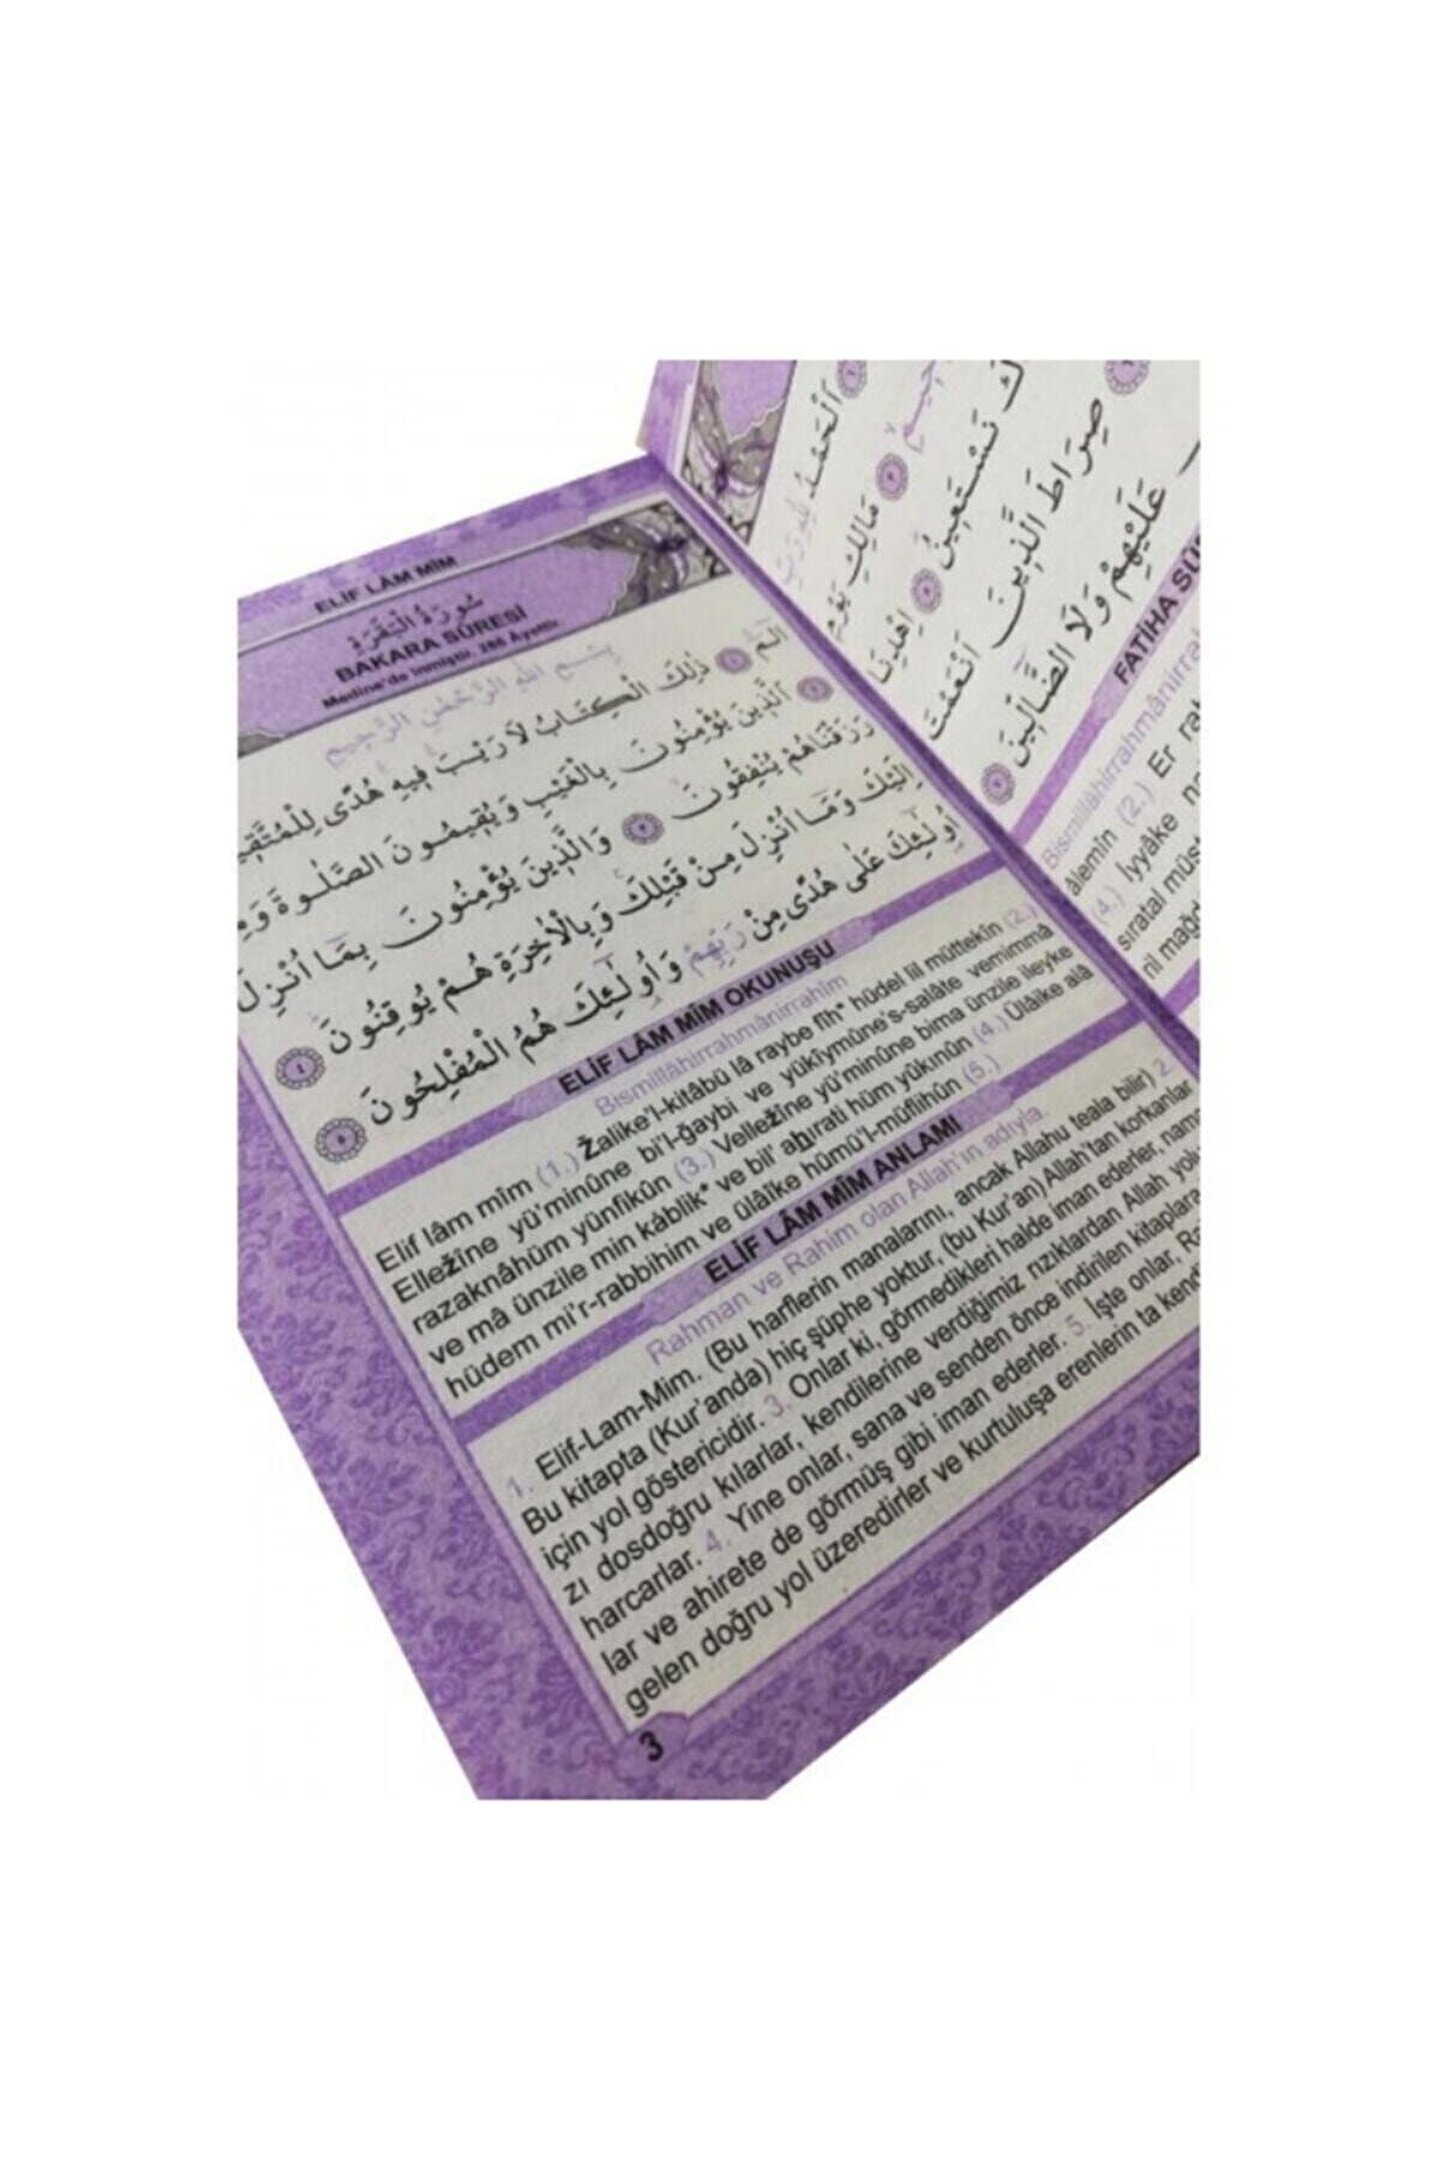 ELİF LÂM MÎM
سُورَةُ الْبَقَرَةِ
BAKARA SÛRESİ
Medine'de inmiştir. 286 Âyettir.
بِسْمِ اللهِ الرَّحْمٰنِ الرَّحِيمِ
الٓمٓ ﴿١﴾ ذٰلِكَ الْكِتَابُ لَا رَيْبَ فِيهِ هُدًى لِلْمُتَّقِي
﴿٢﴾ اَلَّذِينَ يُؤْمِنُونَ بِالْغَيْبِ وَيُقِيمُونَ الصَّلٰوةَ وَمِ
رَزَقْنَاهُمْ يُنْفِقُونَ ﴿٣﴾ وَالَّذِينَ يُؤْمِنُونَ بِمَٓا اُنْزِلَ
اِلَيْكَ وَمَٓا اُنْزِلَ مِنْ قَبْلِكَ وَبِالْاٰخِرَةِ هُمْ يُوقِنُونَ ﴿٤﴾
اُو۬لٰٓئِكَ عَلٰى هُدًى مِنْ رَبِّهِمْ وَاُو۬لٰٓئِكَ هُمُ الْمُفْلِحُونَ ﴿٥﴾
ELİF LÂM MÎM OKUNUŞU
Bismillâhirrahmânirrahîm
Elif lâm mîm (1.) Žalike'l-kitâbü lâ raybe fîh* hüdel lil müttekîn (2.)
Elležîne yü'minûne bi'l-ğaybi ve yükîymûne's-salâte vemimmâ
razaknâhüm yünfikûn (3.) Velležîne yü'minûne bima ünzile ileyke
ve mâ ünzile min káblik* ve bil' ahırati hüm yûkınûn (4.) Ülâike alâ
hüdem mi'r-rabbihim ve ülâike hümü'l-müflihûn (5.)
ELİF LÂM MÎM ANLAMI
Rahman ve Rahim olan Allah'ın adıyla
1. Elif-Lam-Mim. (Bu harflerin manalarını, ancak Allahu teala bilir) 2.
Bu kitapta (Kur'anda) hiç şüphe yoktur, (bu Kur'an) Allah'tan korkanlar
için yol göstericidir. 3. Onlar ki, görmedikleri halde iman ederler, nama
zı dosdoğru kılarlar, kendilerine verdiğimiz rızıklardan Allah yolu
harcarlar. 4. Yine onlar, sana ve senden önce indirilen kitaplara
lar ve ahirete de görmüş gibi iman ederler. 5. İşte onlar, Ra
gelen doğru yol üzeredirler ve kurtuluşa erenlerin ta kend
3
اَلْحَمْدُ لِلّٰهِ رَبِّ
مَالِكِ يَوْمِ
نَسْتَعِينُ ﴿٥﴾ اِهْدِنَا
صِرَاطَ الَّذِينَ اَنْعَمْتَ
عَلَيْهِمْ وَلَا الضَّٓالِّينَ
FATİHA SÛR
Bismillâhirrahmânirra
âlemîn (2.) Er ra
(4.) İyyâke n
sıratal müst
ril mağd